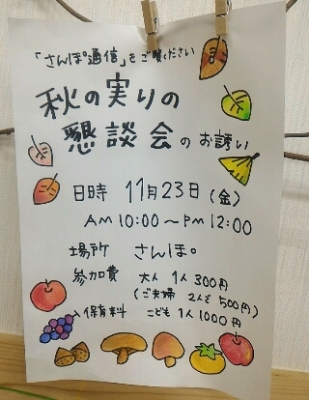 「さんぽ通信」をご覧ください
秋の実りの
懇談会のお誘い
日時 11月23日(金)
AM 10:00〜PM 12:00
場所 さんぽ。
参加費 大人 1人 300円
(ご夫婦 2人で 500円)
保育料 こども 1人 1000円